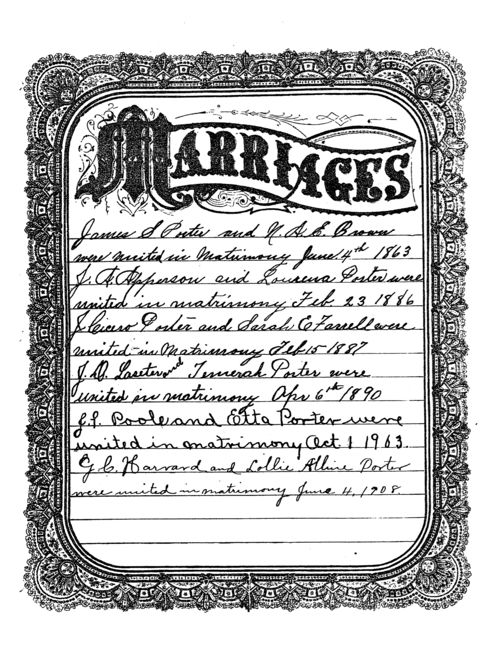 MARRIAGES
James S Porter and N. A. E. Brown
were united in Matrimony June 4th 1863
J. A. Apperson and Lourena Porter were
united in matrimony Feb 23 1886
J Cicero Porter and Sarah E Farrell were
united in Matrimony Feb 15 1887
J. O. Laseter and Porter were
united in matrimony Apr 6th 1890
Poole and Etta Porter were
united in matrimony Oct 1 1963.
G C. Harvard and Lollie Porter
were united in matrimony June 4, 1908